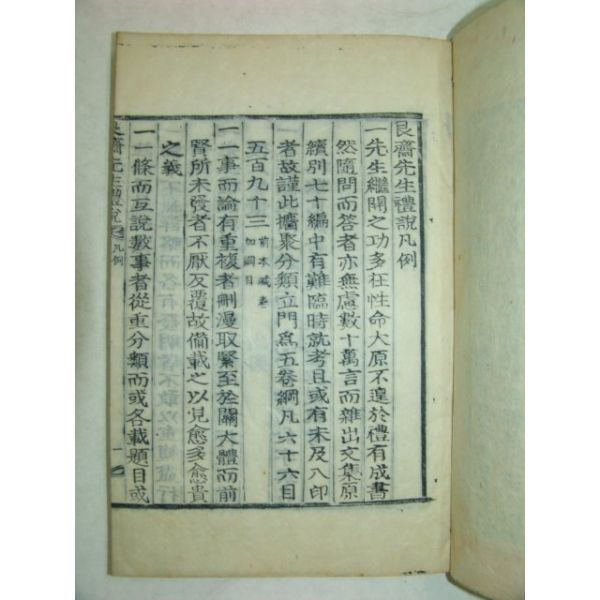 艮齋先生禮說凡例
一先生繼開之功多在性命大原不遑於禮有成書
然隨問而答者亦無慮數十萬言而雜出文集原
續別七十編中有難臨時就考且或有未及入印
者故謹此攟聚分類立門爲五卷綱凡六十六目
五百九十三
前本減卷
加綱目
一一事而論有重複者刪漫取緊至於關大體而前
賢所未發者不厭反覆故備載之以見愈多愈貴
之義
一一條而互說數事者從重分類而或各載題目或
艮齋先生禮說 凡例 一